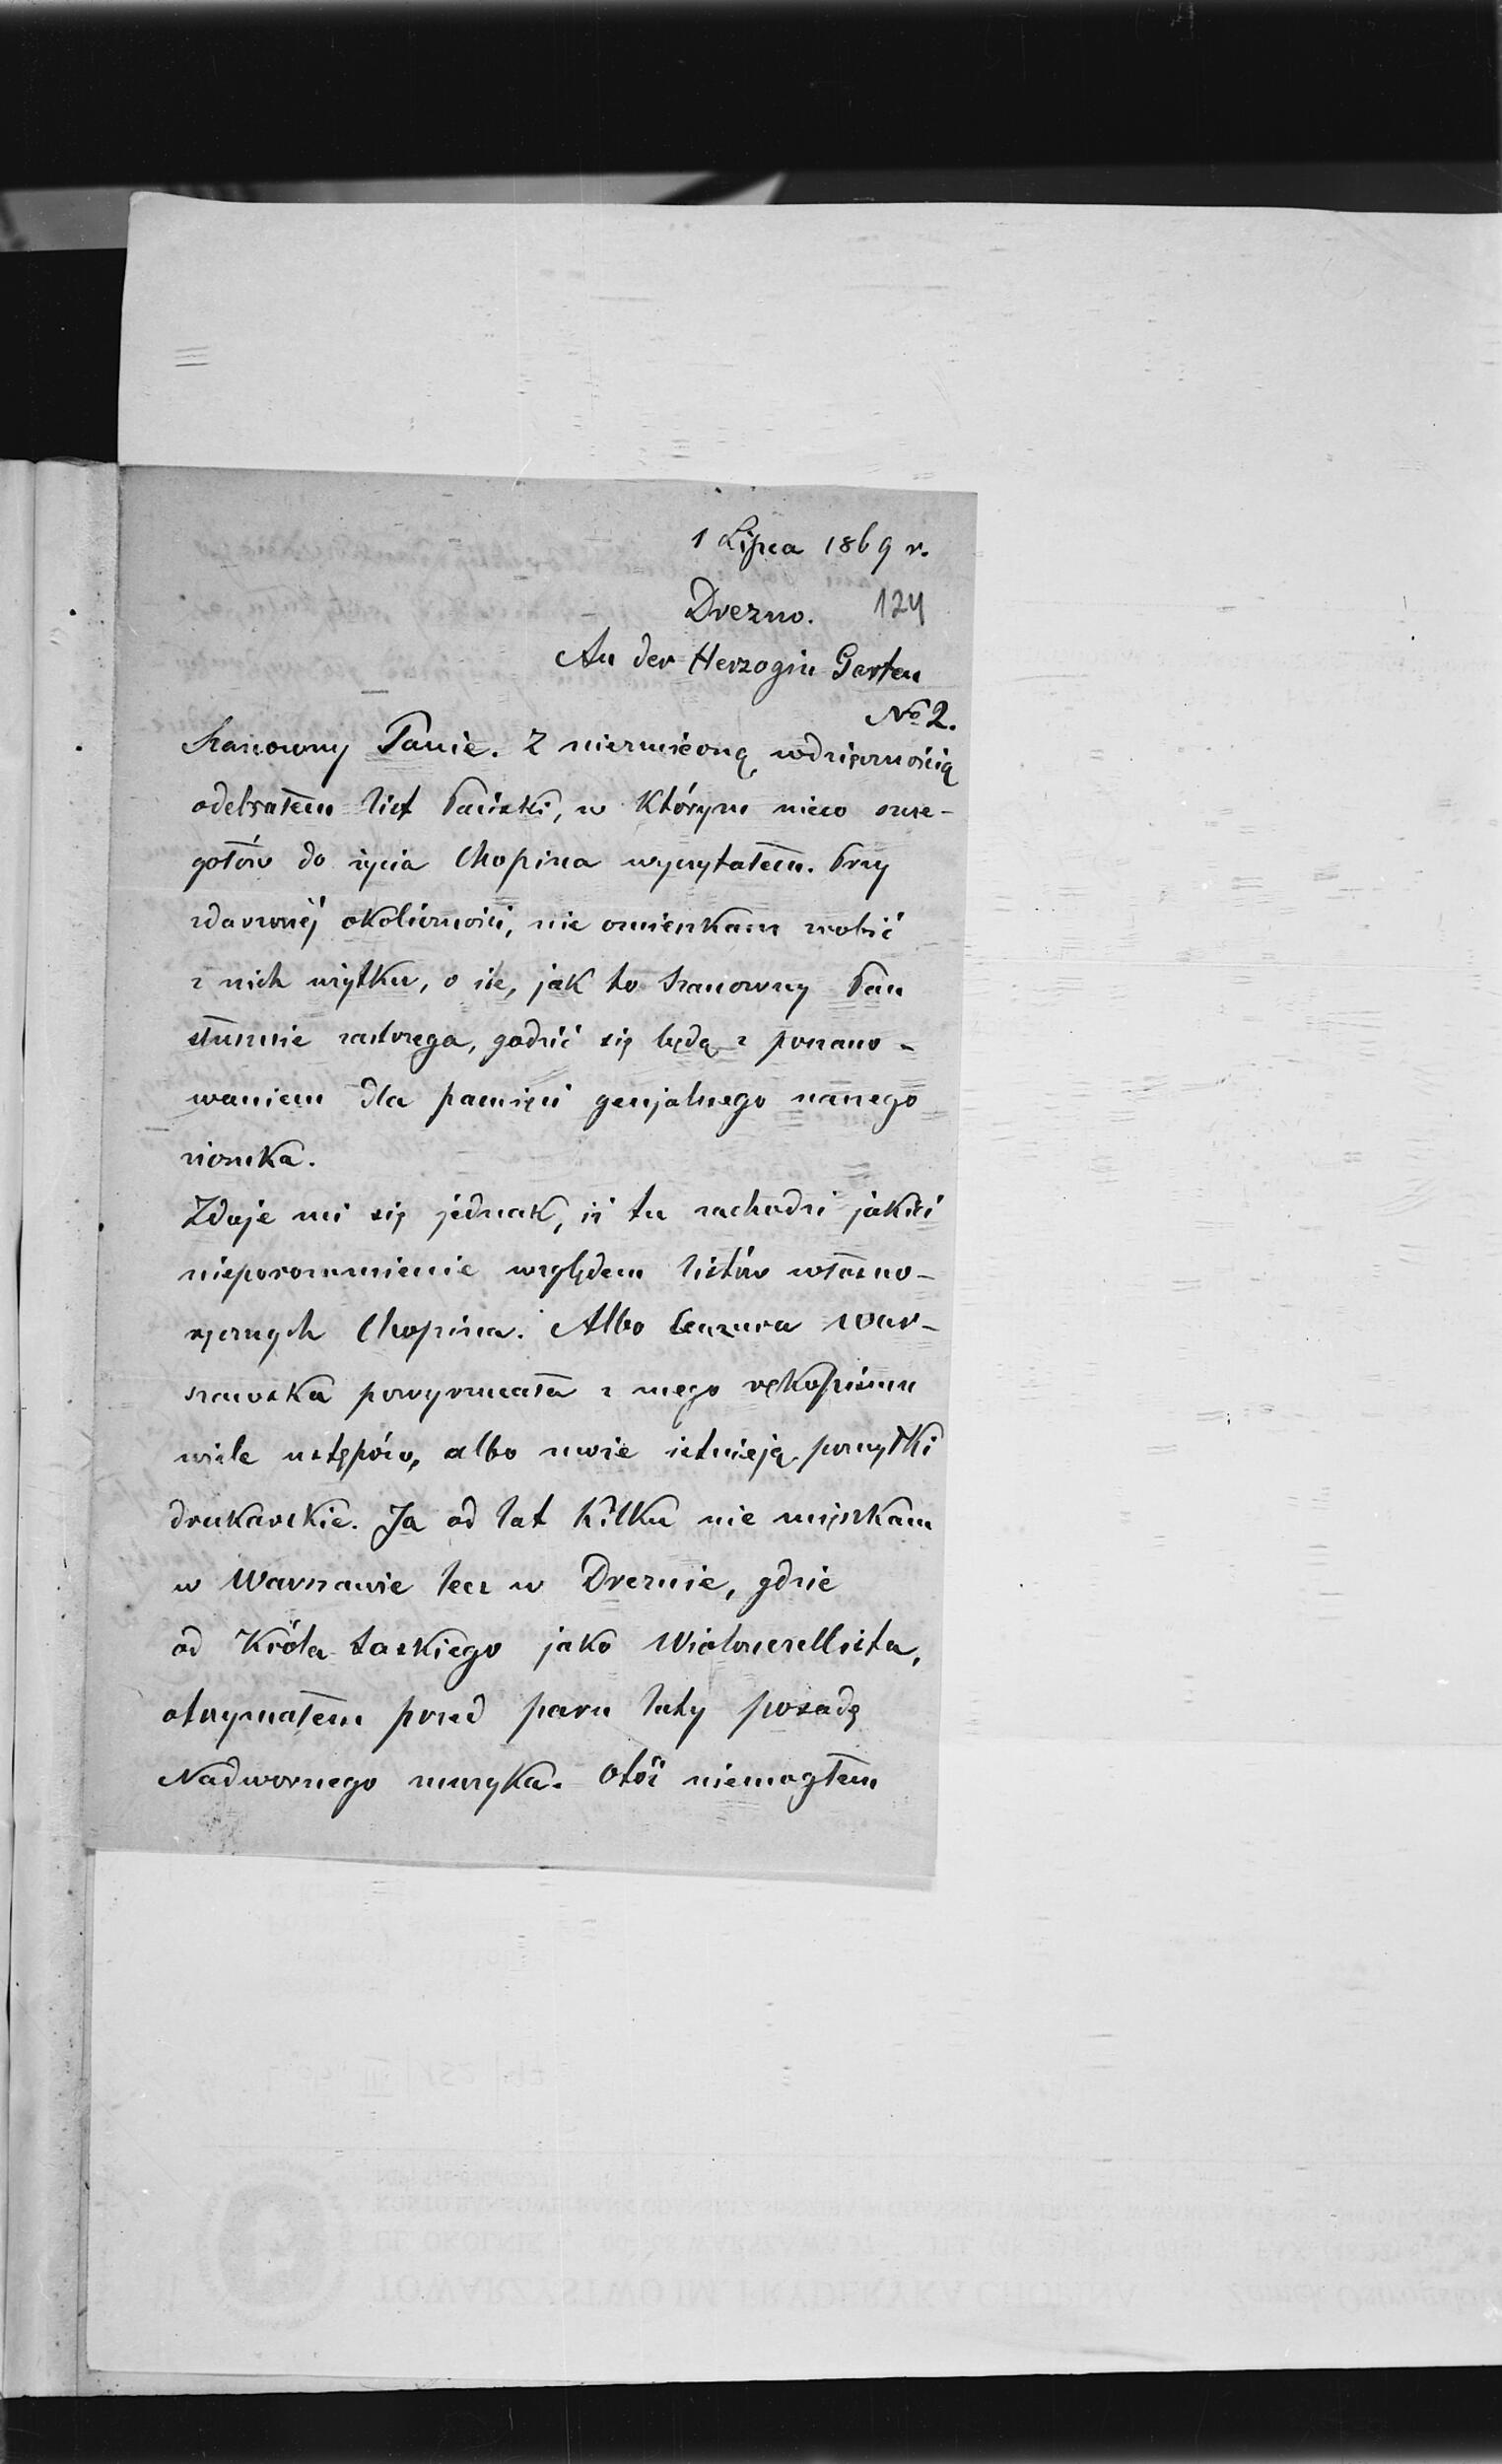 1 Lipca 1869 r.
Drezno. 124
An der Herzogin Garten
№ 2.
Szanowny Panie. Z niezmierną wdzięcznością
odebrałem list Pański, w którym nieco szcze-
gółów do życia Chopina wyczytałem. Przy
zdarzonéj okoliczności, nie omieszkam zrobić
z nich użytku, o ile, jak to Szanowny Pan
słusznie zastrzega, godzić się będą z poszano-
waniem dla pamięci genjalnego naszego
ziomka.
Zdaje mi się jednak, iż tu zachodzi jakieś
nieporozumienie względem listów własno-
ręcznych Chopina. Albo Cenzura War-
szawska powyrzucała z mego rękopismu
wiele ustępów, albo może istnieją pomyłki
drukarskie. Ja od lat kilku nie mięszkam
w Warszawie lecz w Dreznie, gdzie
od Króla Saskiego jako Wioloncellista,
otrzymałem przed paru laty posadę
Nadwornego muzyka. Otóż niemogłem